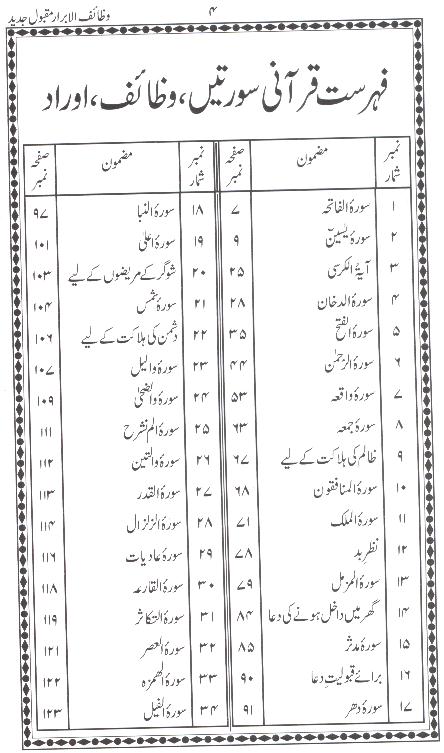 ۴ وظائف الابرار مقبول جدید
فہرست قرآنی سورتیں، وظائف، اوراد
نمبر شمار مضمون صفحہ نمبر
۱ سورۃ الفاتحہ ۷
۲ سورۃ یٰسین ۹
۳ آیۃ الکرسی ۲۵
۴ سورۃ الدخان ۲۸
۵ سورۃ الفتح ۳۵
۶ سورۃ الرحمٰن ۴۴
۷ سورۃ واقعہ ۵۳
۸ سورۃ جمعہ ۶۳
۹ ظالم کی ہلاکت کے لیے ۶۷
۱۰ سورۃ المنافقون ۶۸
۱۱ سورۃ الملک ۷۱
۱۲ نظر بد ۷۸
۱۳ سورۃ المزمل ۷۹
۱۴ گھر میں داخل ہونے کی دعا ۸۴
۱۵ سورۃ مدثر ۸۵
۱۶ برائے قبولیت دعا ۹۰
۱۷ سورۃ دھر ۹۱
نمبر شمار مضمون صفحہ نمبر
۱۸ سورۃ النبا ۹۷
۱۹ سورۃ اعلیٰ ۱۰۱
۲۰ شوگر کے مریضوں کے لیے ۱۰۳
۲۱ سورۃ شمس ۱۰۴
۲۲ دشمن کی ہلاکت کے لیے ۱۰۶
۲۳ سورۃ والیل ۱۰۷
۲۴ سورۃ والضحیٰ ۱۰۹
۲۵ سورۃ الم نشرح ۱۱۱
۲۶ سورۃ والتین ۱۱۲
۲۷ سورۃ القدر ۱۱۳
۲۸ سورۃ الزلزال ۱۱۴
۲۹ سورۃ عادیات ۱۱۶
۳۰ سورۃ القارعہ ۱۱۸
۳۱ سورۃ التکاثر ۱۱۹
۳۲ سورۃ العصر ۱۲۱
۳۳ سورۃ الھمزہ ۱۲۲
۳۴ سورۃ الفیل ۱۲۳